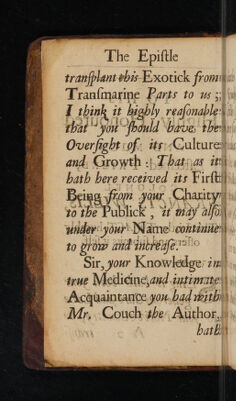 The Epiſtle
tranſplant this Exotick from
Tranſmarine Parts to us ;
I think it highly reaſonable
that you ſhould have the
Overſight of its Culture
and Growth : That as it
hath here received its Firſt
Being from your Charity
to the Publick , it may alſo
under your Name continue
to grow and increaſe.
Sir, your Knowledge in
true Medicine, and intimate
Acquaintance you had with
Mr. Couch the Author,
hath